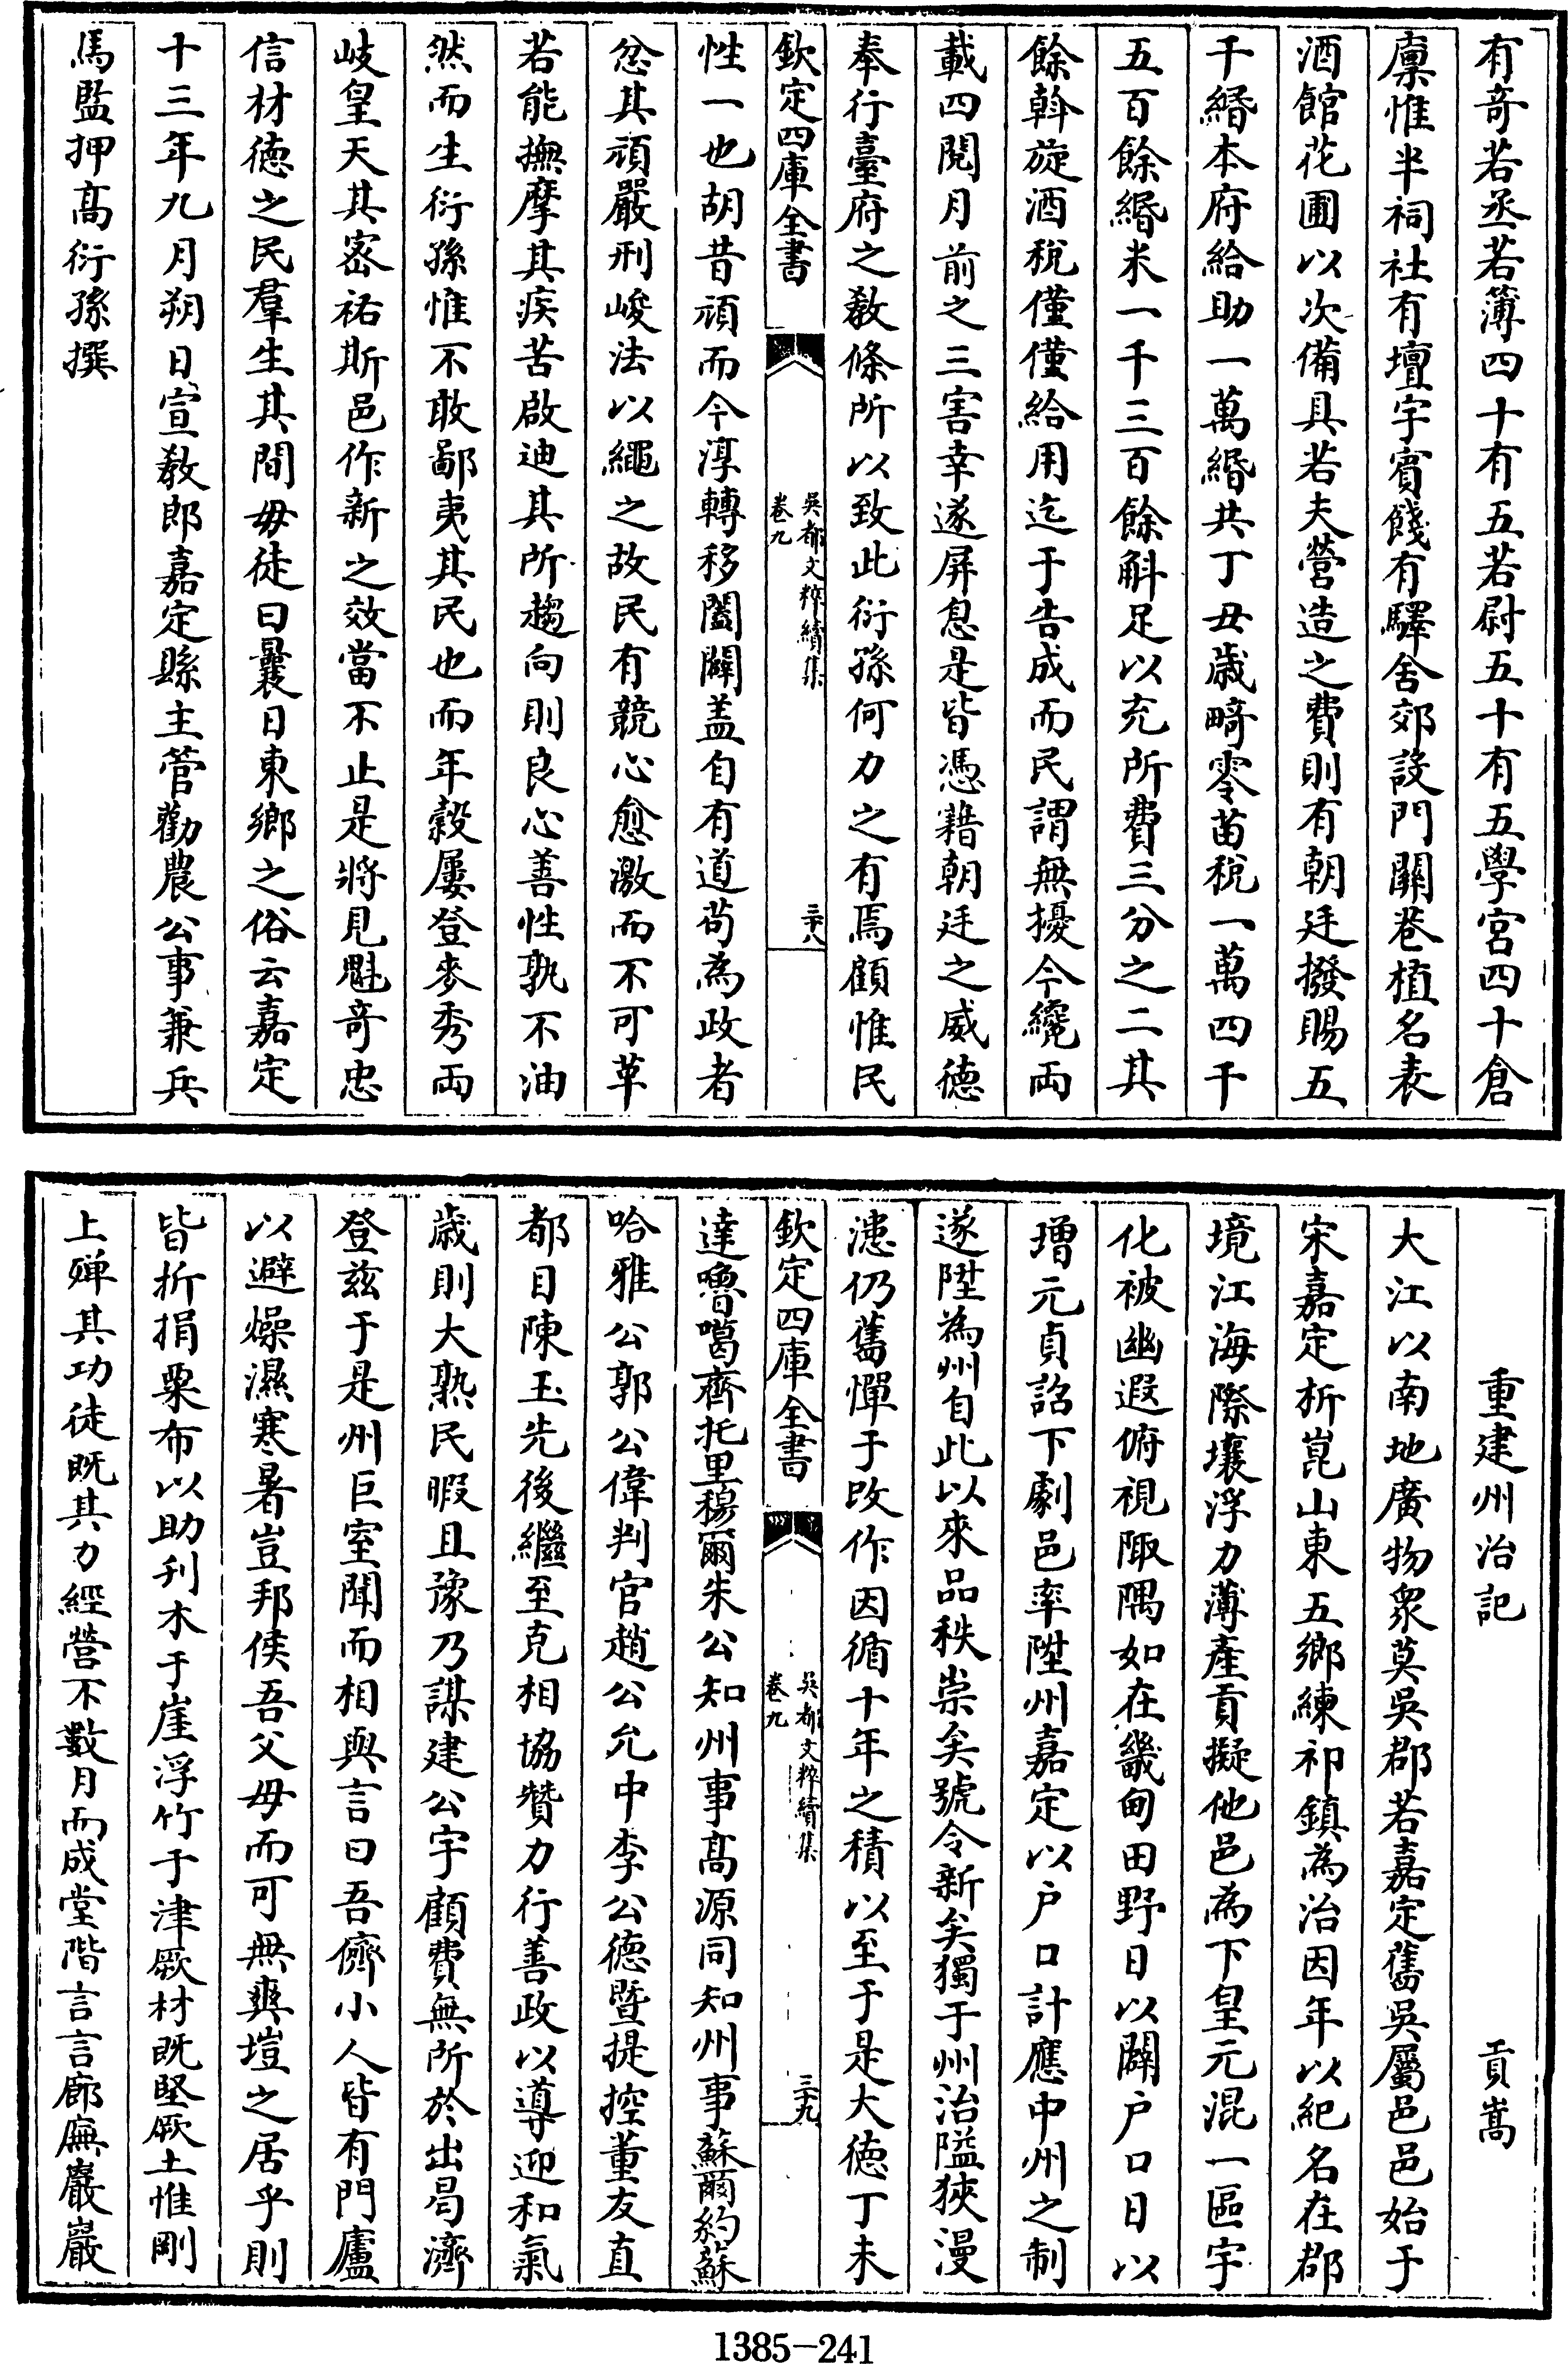 有奇若丞若簿四十有五若尉五十有五學宮四十倉
廪惟半祠社有壇宇賓餞有驛舍郊設門關巷植名表
酒館花圃以次備具若夫營造之費則有朝廷撥賜五
千緡本府給助一萬緡共丁丑歳畸零苗稅一萬四千
五百餘緡米一千三百餘斛足以充所費三分之二其
餘斡旋酒稅僅僅給用迄于告成而民謂無擾今纔兩
載四閱月前之三害幸遂屏息是皆憑藉朝廷之威德
奉行臺府之敎條所以致此衍孫何力之有焉顧惟民
欽定四庫全書
吳都文粹續集
卷九
三十八
性一也胡昔頑而今淳轉移闔闢盖自有道苟為政者
忿其頑嚴刑峻法以繩之故民有競心愈激而不可革
若能撫摩其疾苦啟迪其所趨向則良心善性孰不油
然而生衍孫惟不敢鄙夷其民也而年榖屢登麥秀兩
岐皇天其宻祐斯邑作新之效當不止是將見魁竒忠
信材德之民羣生其間毋徒曰曩日東鄉之俗云嘉定
十三年九月朔日宣敎郎嘉定縣主管勸農公事兼兵
馬監押高衍孫撰
重建州治記 貢嵩
大江以南地廣物衆莫吳郡若嘉定舊吳屬邑邑始于
宋嘉定析崑山東五鄉練祁鎮為治因年以紀名在郡
境江海際壤浮力薄產貢擬他邑為下皇元混一區宇
化被幽遐俯視陬隅如在畿甸田野日以闢户口日以
增元貞詔下劇邑率陞州嘉定以户口計應中州之制
遂陞為州自此以來品秩崇矣號令新矣獨于州治隘狹漫
漶仍舊憚于改作因循十年之積以至于是大德丁未
欽定四庫全書
吳都文粹續集
卷九
三十九
達嚕噶齊托里穆爾朱公知州事高源同知州事蘇爾約蘇
哈雅公郭公偉判官趙公允中李公德暨提控董友直
都目陳玉先後繼至克相協贊力行善政以導迎和氣
歳則大熟民暇且豫乃謀建公宇顧費無所於出曷濟
登兹于是州巨室聞而相與言曰吾儕小人皆有門廬
以避燥濕寒暑豈邦侯吾父母而可無爽塏之居乎則
皆折捐粟布以助刋木于崖浮竹于津厥材既堅厥土惟剛
上殫其功徒既其力經營不數月而成堂階言言廊廡巖巖
1385-241